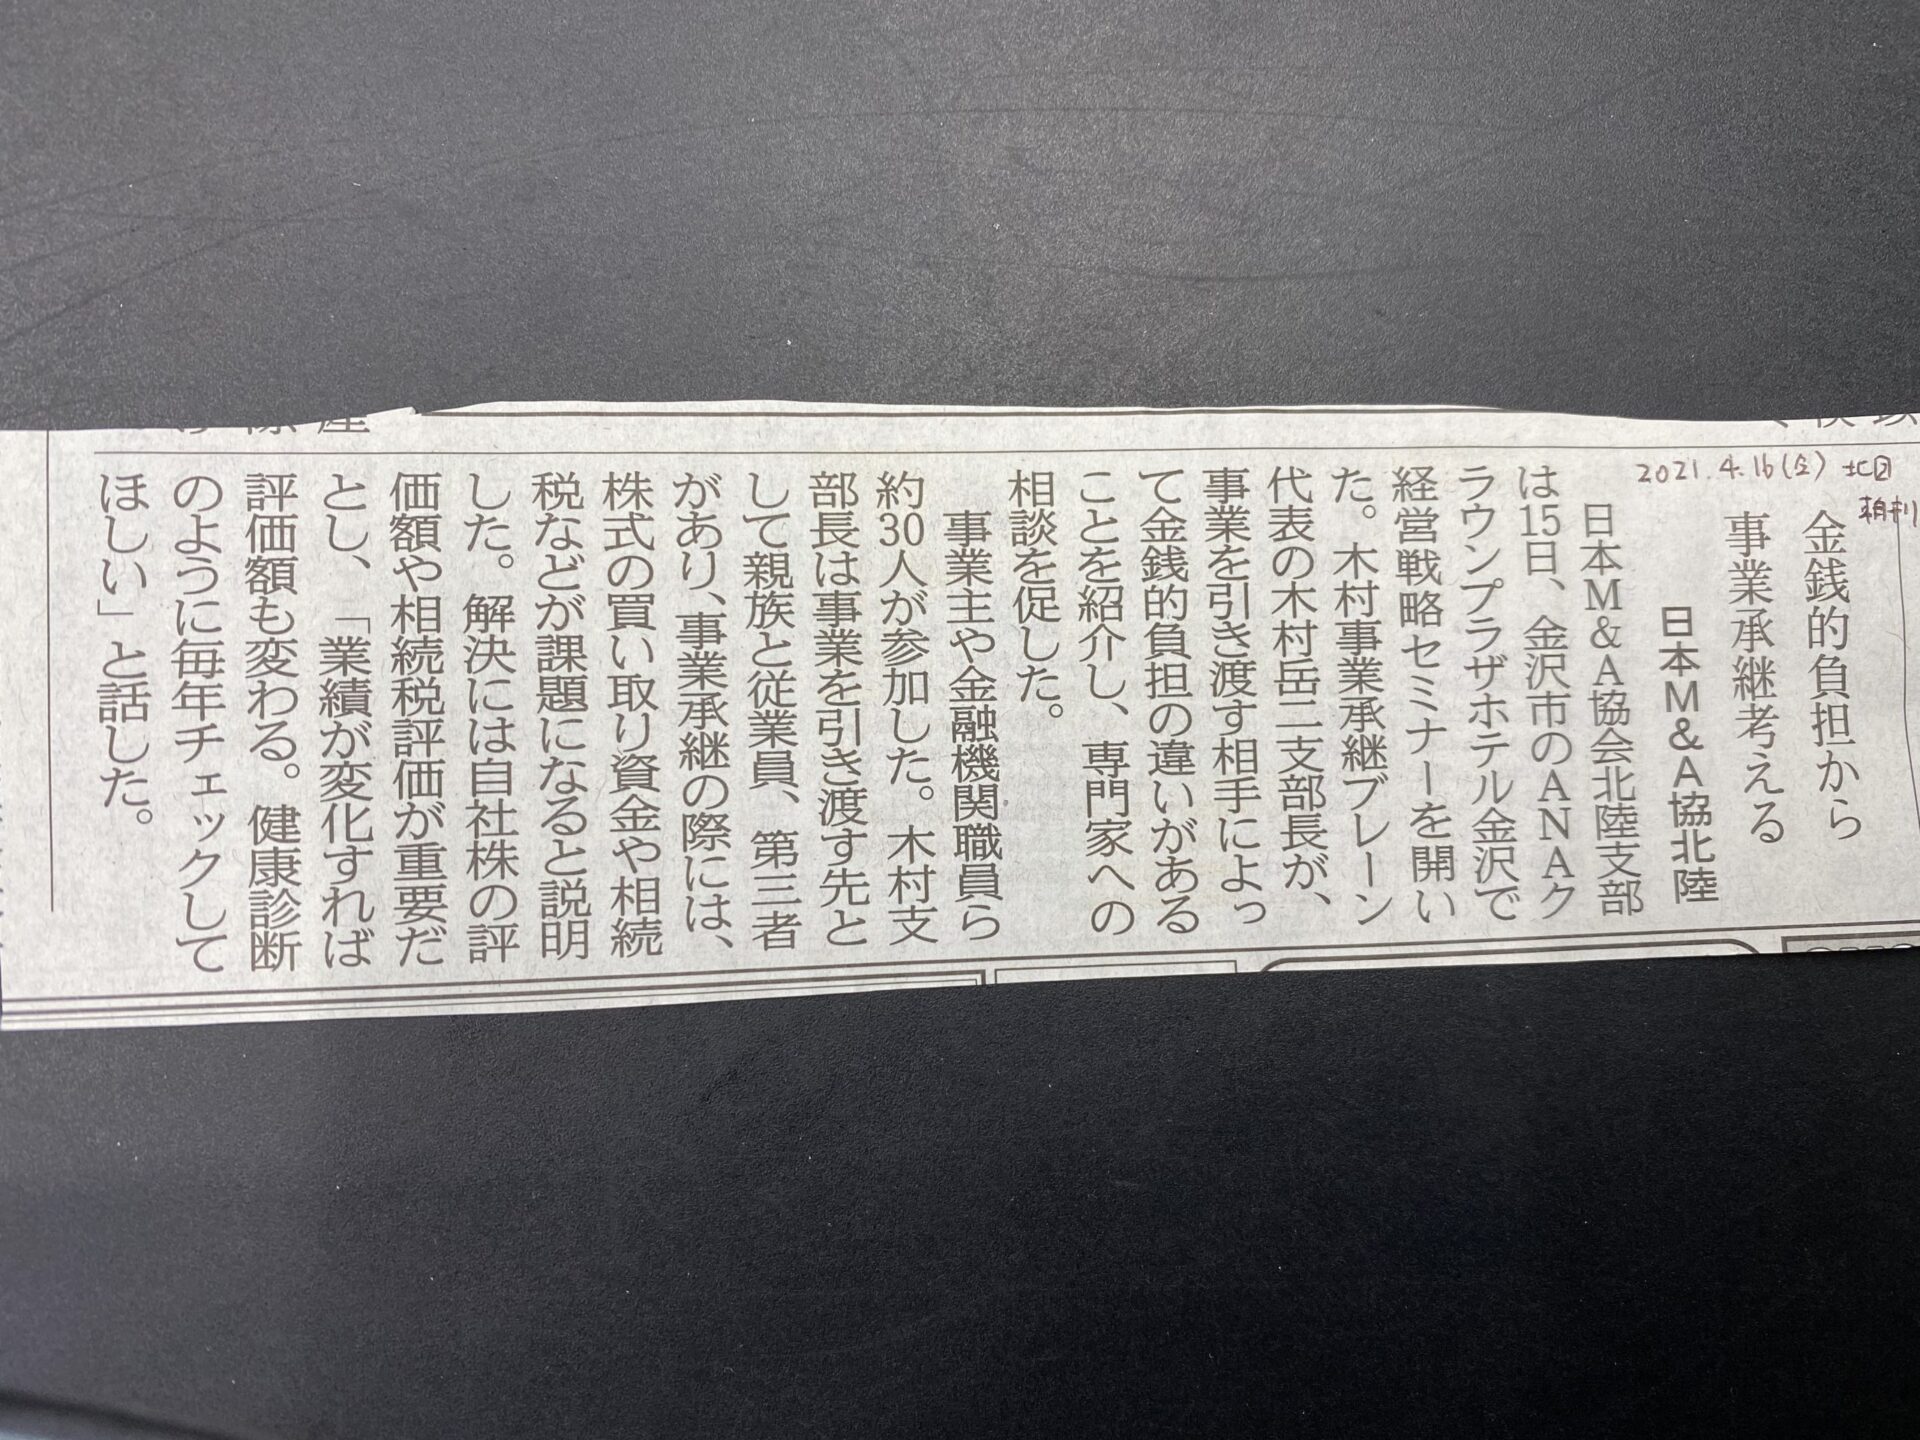 2021.4.16(金) 北國
朝刊
金銭的負担から
事業承継考える
日本M&A協北陸
日本M&A協会北陸支部
は15日、金沢市のANAク
ラウンプラザホテル金沢で
経営戦略セミナーを開い
た。木村事業承継ブレーン
代表の木村岳二支部長が、
事業を引き渡す相手によっ
て金銭的負担の違いがある
ことを紹介し、専門家への
相談を促した。
事業主や金融機関職員ら
約30人が参加した。木村支
部長は事業を引き渡す先と
して親族と従業員、第三者
があり、事業承継の際には、
株式の買い取り資金や相続
税などが課題になると説明
した。解決には自社株の評
価額や相続税評価が重要だ
とし、「業績が変化すれば
評価額も変わる。健康診断
のように毎年チェックして
ほしい」と話した。